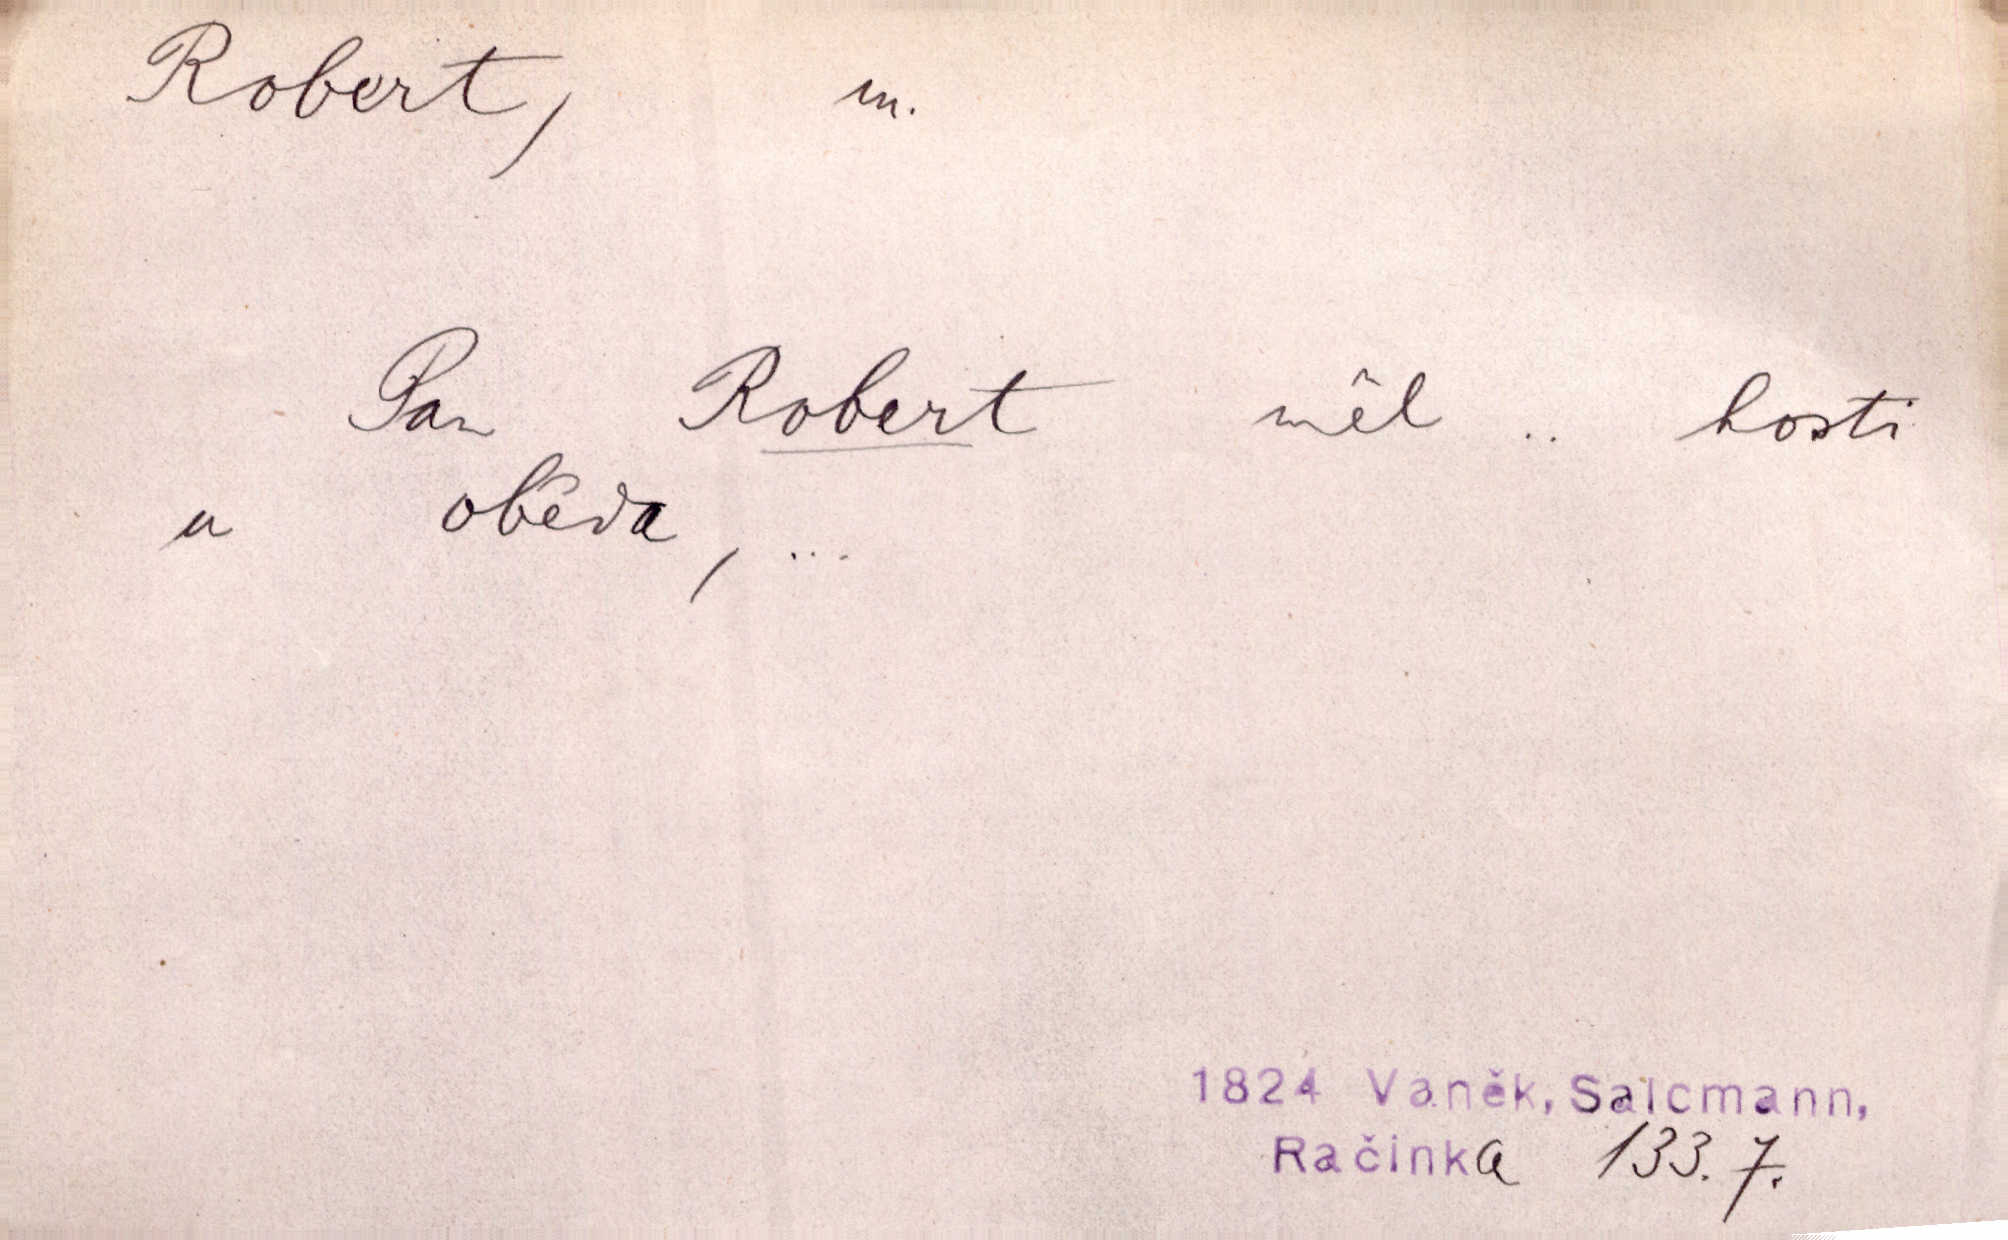 Robert, m.
Pan Robert měl .. hosti
u oběda, ...
1824 Vaněk, Salcmann,
Račinka 133. 7.